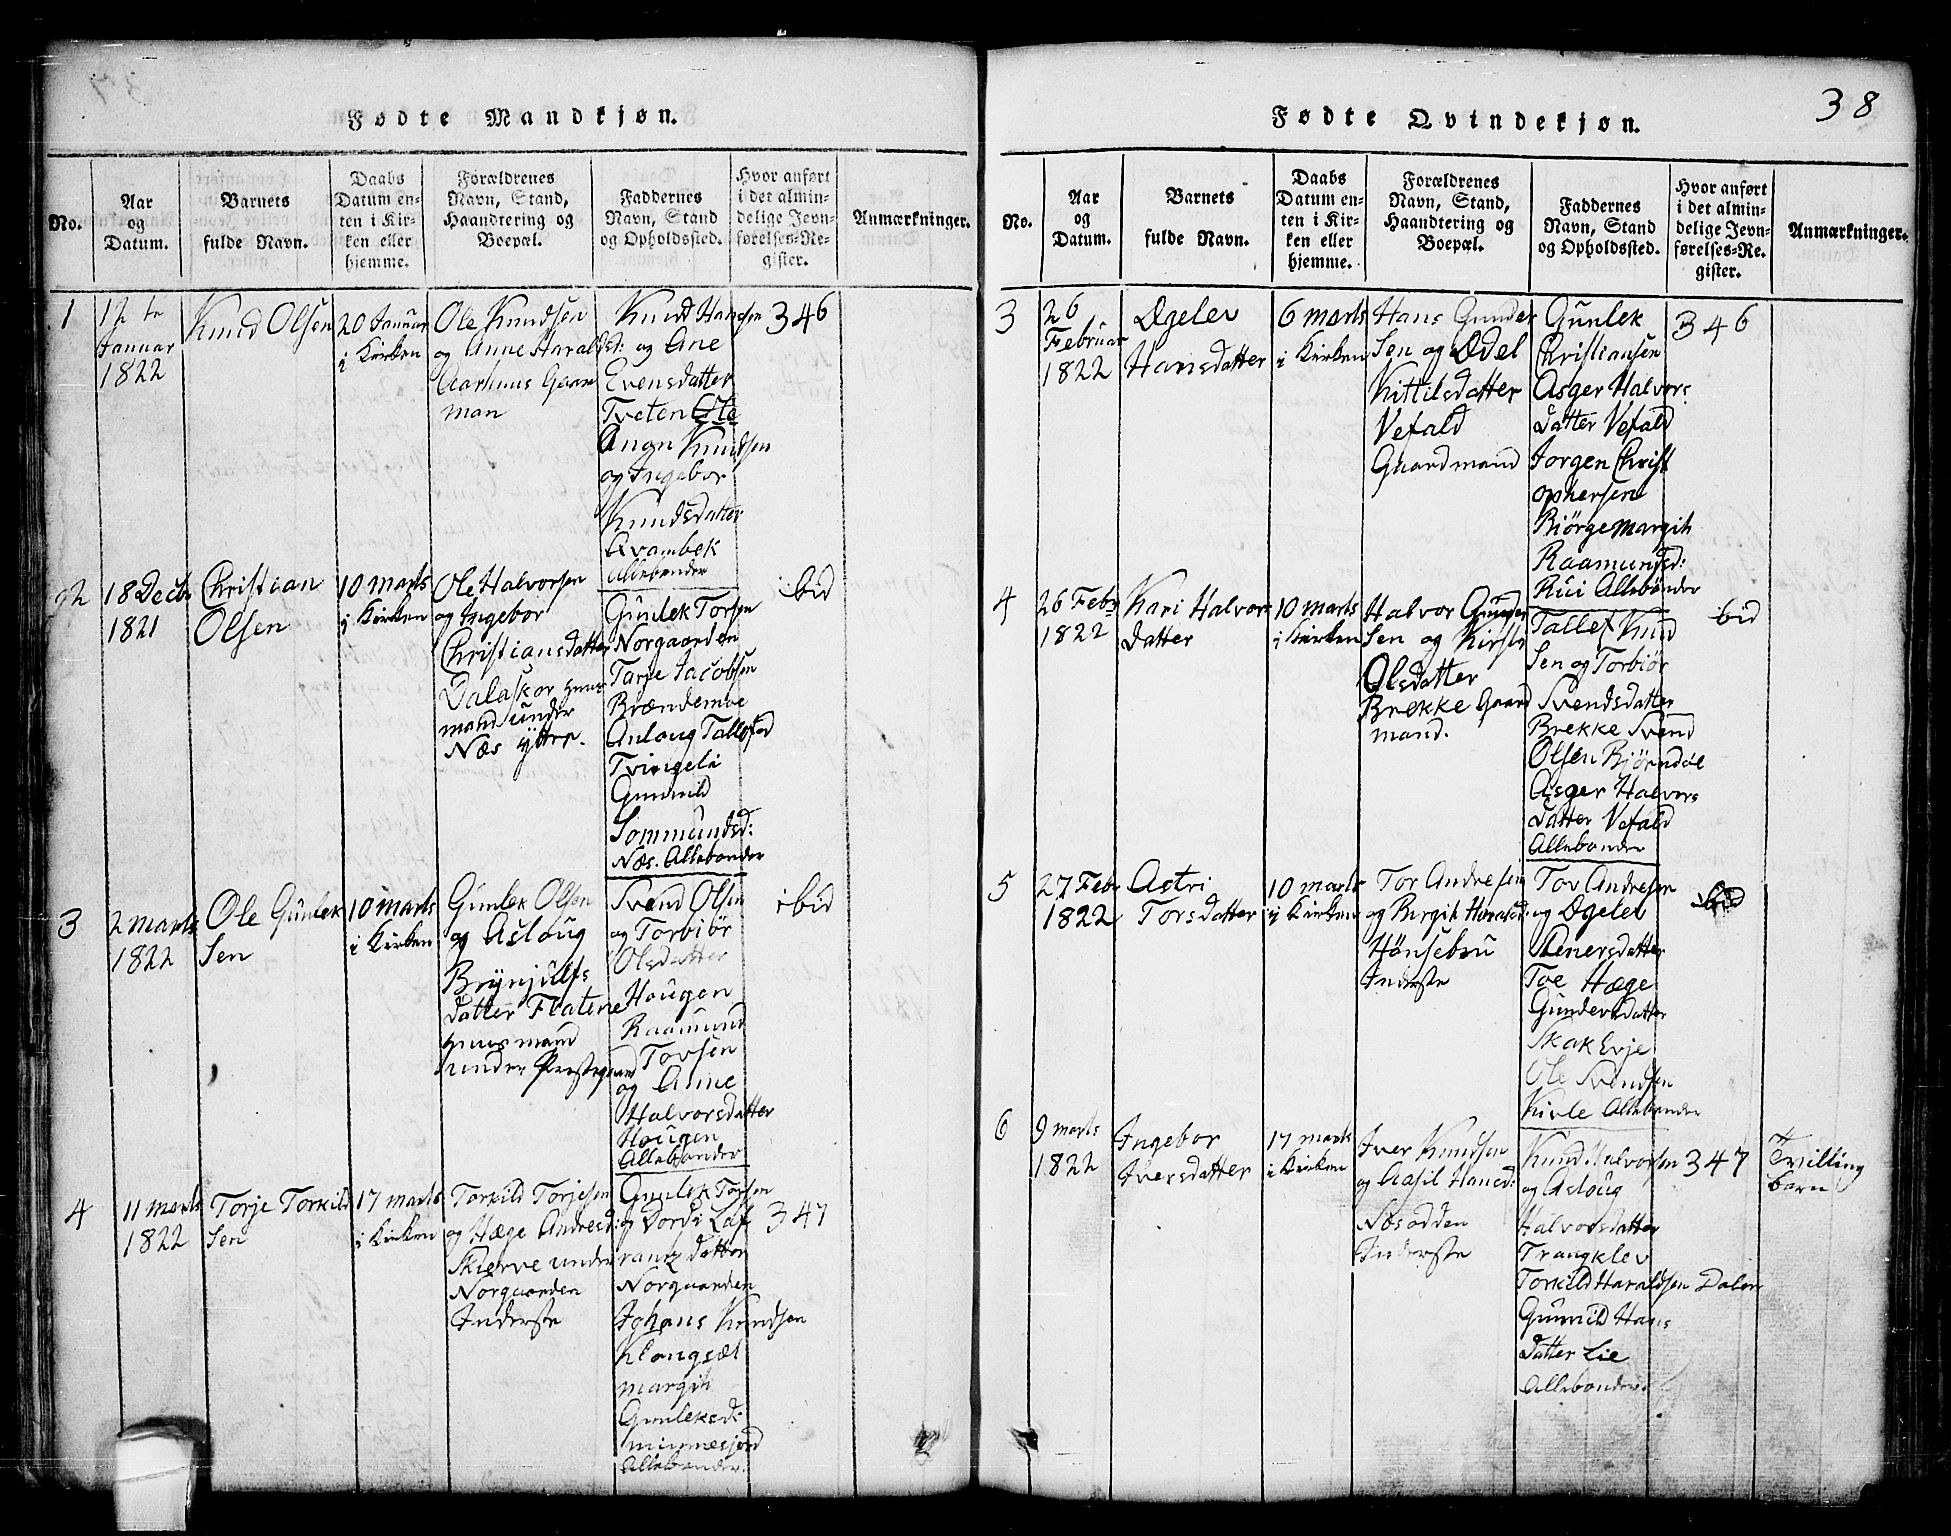 38
Fødte Mandkjøn.
No.
Aar
og
Datum.
Barnets
fulde Navn.
Daabs
Datum en-
ten i Kir-
ken eller
hjemme.
Forældrenes
Navn, Stand,
Haandtering og
Boepæl.
Faddernes
Navn, Stand
og Opholdssted.
Hvor anført
i det almin-
delige Jevn-
førelses-Re-
gister.
Anmærkninger.
1
12te
Januar
1822
Knud Olsen
20 Januar
i Kirken
Ole Knudsen
og Anne Haralds:
Aarhuus Gaar
man
Knud Hansen
og Ane
Evensdatter
Tveten Ole
Knudsen
og Ingebor
Knudsdatter
Qvambek
Allebønder
346
2
18 Decbr
1821
Christian
Olsen
10 marts
i Kirken
Ole Halvorsen
og Ingebor
Christiansdatter
Dalaskor
mand under
Næs yttre.
Günlek Torsen
Norgaarden
Tarje Jacobsen
Brændemoe
Anloug Tallefsd
Tvingeli
Gunnild
Sommundsd:
Næs. Allebønder
ibid
3
2 marts
1822
Ole Günlek
Sen
10 marts
i Kirken
Günlek Olsen
og Asloug
Brynjulfs
datter Flatene
huusmand
under Prestegaard
Svend Olsen
og Torbiør
Olsdatter
Hougen
Raamund
Tovsen
og Anne
Halvorsdatter
Hougen
Allebønder
ibid
4
11 marts
1822
Torje Torkild
Sen
17 marts
i Kirken
Torkild Torjesen
og Hæge Andresd:
Skierve under
Norgaarden
Inderste
Gunlek Torsen
og Dordi Laf
rantz datter
Norgaarden
Johans Knudsen
Klongsæt
margit
Gunleksd:
Allebønder.
347
Fødte Qvindekjøn.
No.
Aar
og
Datum.
Barnets
fulde Navn.
Daabs
Datum en-
ten i Kir-
ken eller
hjemme.
Forældrenes
Navn, Stand,
Haandtering og
Boepæl.
Faddernes
Navn, Stand
og Opholdssted.
Hvor anført
i det almin-
delige Jevn-
førelses-Re-
gister.
Anmærkninger.
3
26
Februar
1822
Ægelev
Hansdatter
6 marts
i Kirken
Hans Gunder
Sen og Ædel
Kittilsdatter
Vefald
Gaardmand
Günlek
Christiansen
Asger Halvors
Datter Vefald
Jorgen Christ
ophersen
Biörge margit
Raamunsd:
Rui Allebønder
346
4
26 Febr
1822
Kari Halvors
Datter
10 marts
i Kirken
Halvor
Sen og Kirsti
Olsdatter
Brekke Gaard
mand.
Tallef Knud
Sen og Torbiør
Svendsdatter
Brekke Svend
Olsen Bjørndal
Asger Halvors
Datter Vefald
Allebønder
ibid
5
27 Febr
1822
Astri
Torsdatter
10 marts
i Kirken
Tor Andresen
og Birgit Haralsd:
Hönsebru
Inderste
Tov Andresen
og Ægelev
Toe Hæge
Gundersdatter
Skak Evje
Ole Svendsen
Kivle Allebønder
ibid
6
9 marts
1822
Ingebor
Iversdatter
17 marts
i Kirken
Iver Knudsen
og Aasil Hansd:
Næsodden
Inderste
Knud Halvorsen
og Asloug
Halvorsdatter
Trangklev
Torkild Haraldsen Dalen
Gunnild Hans
Datter Lie
Allebønder.
347
Tvilling
barn